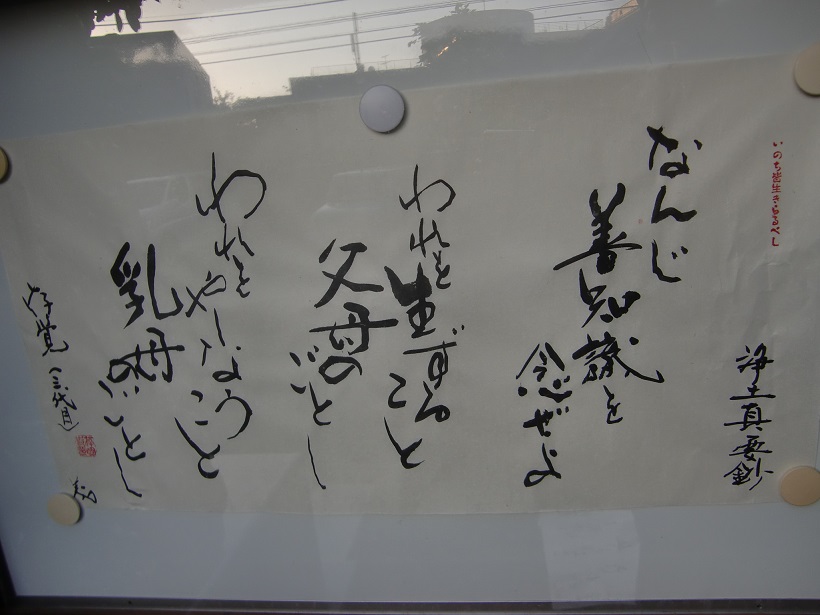 いのち皆生きらるべし
浄土真要鈔
なんじ
善知識を
念ぜよ
われを生ずること
父母の
ごとし
われをやしなうこと
乳母のごとし
存覚(三代目)